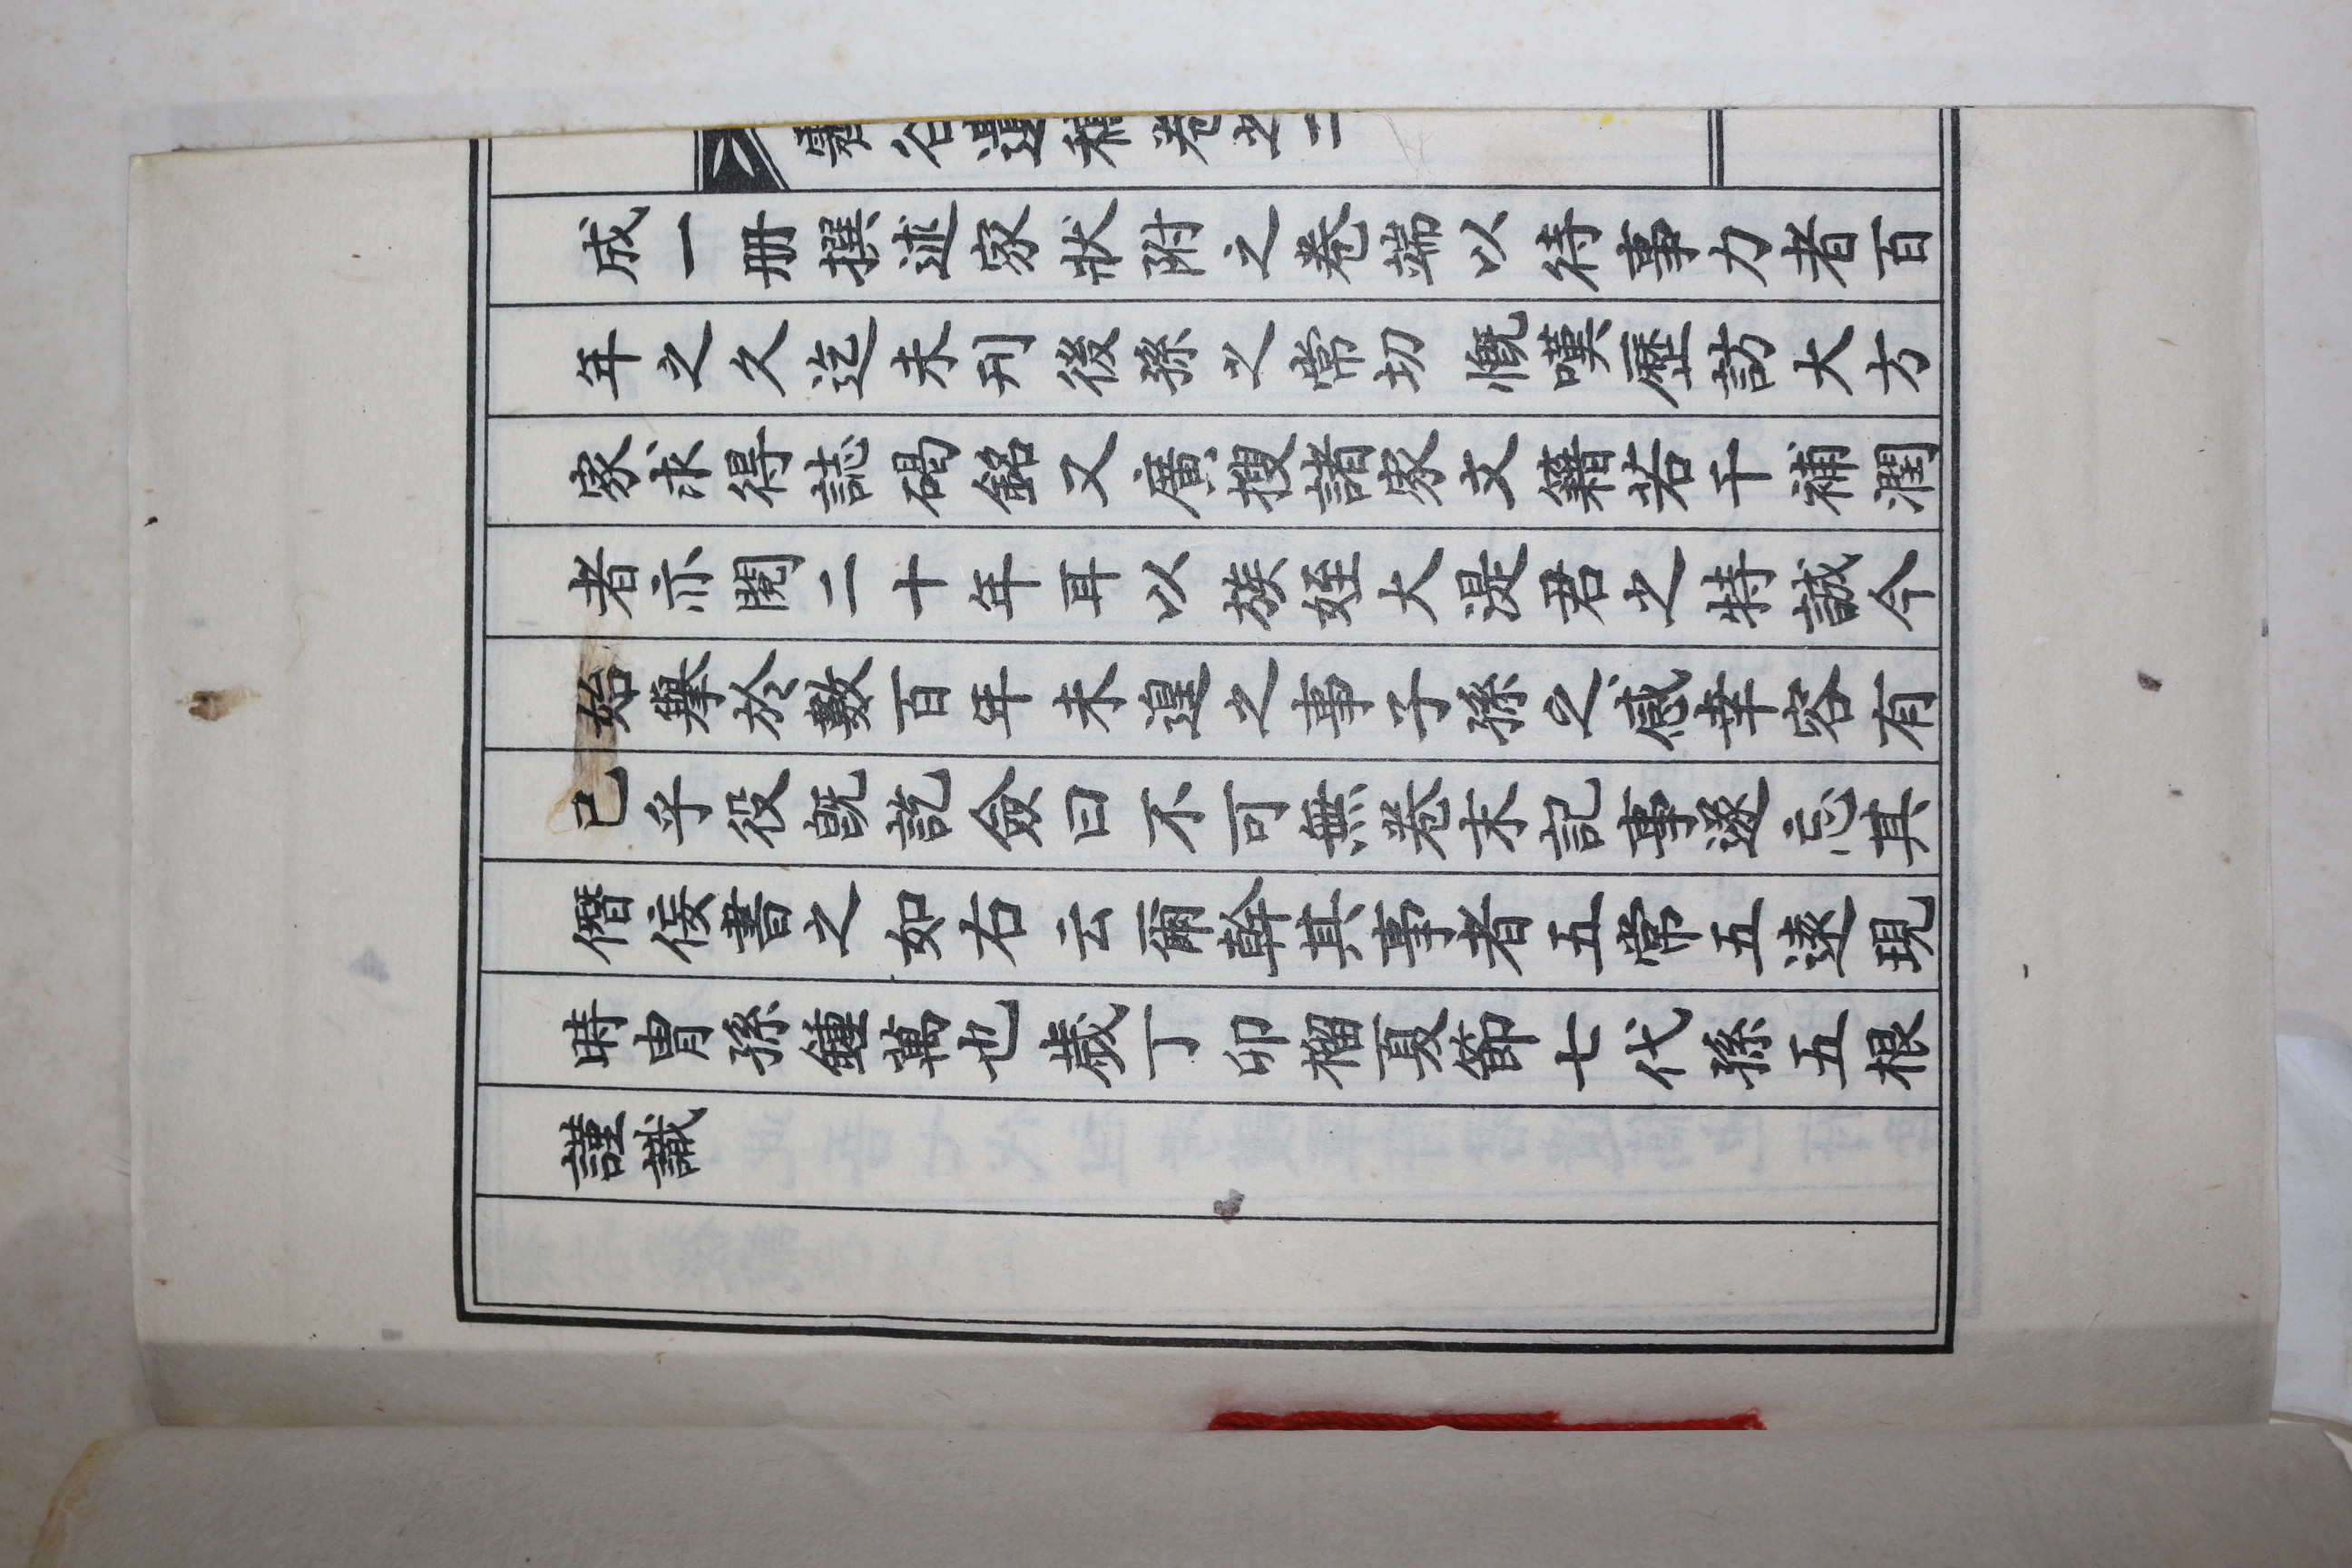 霽谷遺稿卷之二
成一册撰述家狀附之卷端以待事力者百
年之久迄未刊後孫之常切慨嘆歷訪大方
家求得誌碣銘又廣搜諸家文籍若干補潤
者亦閱二十年耳以族姪大湜君之特誠今
始擧於數百年未遑之事子孫之感幸容有
已乎役旣訖僉曰不可無卷末記事遂忘其
僭侫書之如右云爾幹其事者五常五遠現
時胄孫鍾萬也歲丁卯榴夏節七代孫五根
謹識